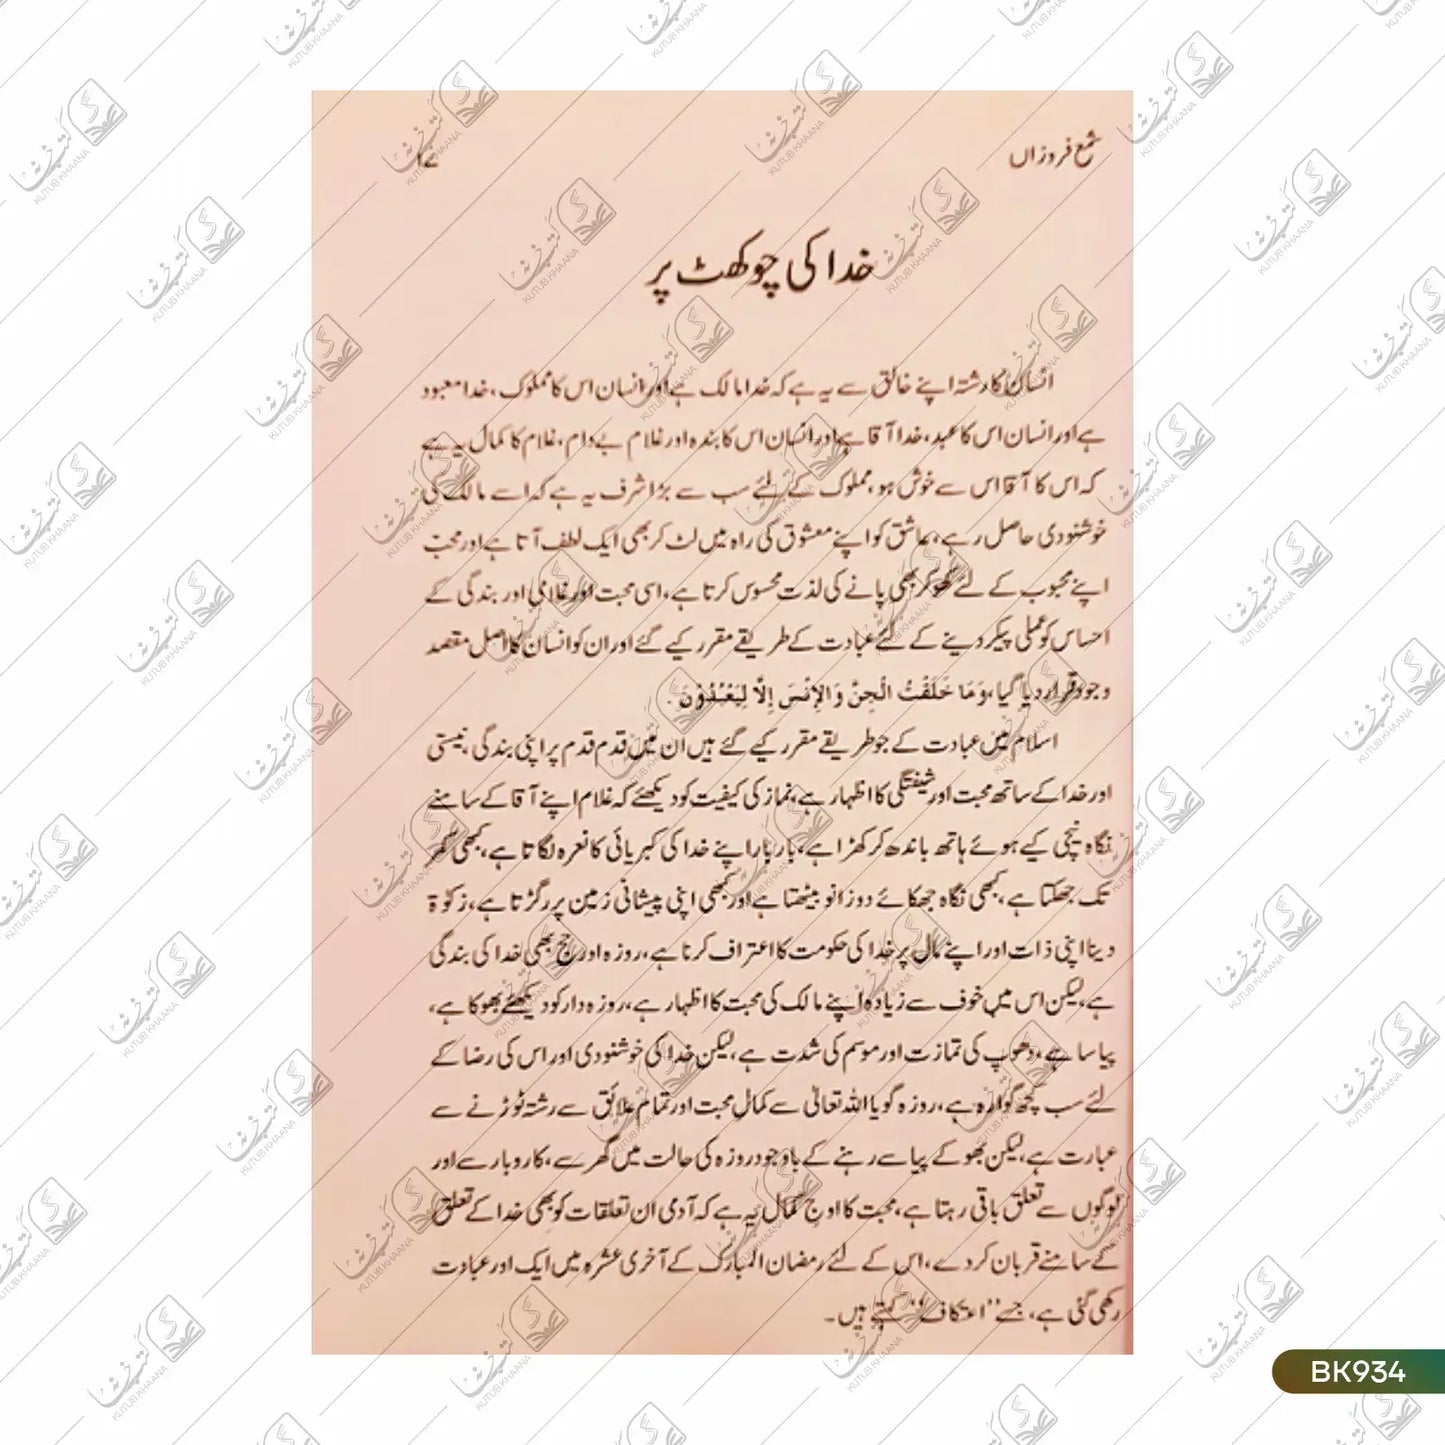 شمع فروزاں
۱۷
خدا کی چوکھٹ پر
انسان کا رشتہ اپنے خالق سے یہ ہے کہ خدا مالک ہے اور انسان اس کا مملوک، خدا معبود
ہے اور انسان اس کا عبد، خدا آقا ہے اور انسان اس کا بندہ اور غلام بے دام، غلام کا کمال یہ ہے
کہ اس کا آقا اس سے خوش ہو، مملوک کے لئے سب سے بڑا شرف یہ ہے کہ اسے مالک کی
خوشنودی حاصل رہے، عاشق کو اپنے معشوق کی راہ میں لٹ کر بھی ایک لطف آتا ہے اور محبّ
اپنے محبوب کے لئے کھو کر بھی پانے کی لذت محسوس کرتا ہے، اسی محبت اور غلامی اور بندگی کے
احساس کو عملی پیکر دینے کے لئے عبادت کے طریقے مقرر کیے گئے اور ان کو انسان کا اصل مقصد
وجود قرار دیا گیا، وَمَا خَلَقْتُ الْجِنَّ وَالإِنْسَ إِلَّا لِيَعْبُدُوْنَ .
اسلام میں عبادت کے جو طریقے مقرر کیے گئے ہیں ان میں قدم قدم پر اپنی بندگی، نیستی
اور خدا کے ساتھ محبت اور شیفتگی کا اظہار ہے، نماز کی کیفیت کو دیکھئے کہ غلام اپنے آقا کے سامنے
نگاہ نیچی کیے ہوئے ہاتھ باندھ کر کھڑا ہے، بار بار اپنے خدا کی کبریائی کا نعرہ لگاتا ہے، کبھی کمر
تک جھکتا ہے، کبھی نگاہ جھکائے دوزانو بیٹھتا ہے اور کبھی اپنی پیشانی زمین پر رگڑتا ہے، زکوٰۃ
دینا اپنی ذات اور اپنے مال پر خدا کی حکومت کا اعتراف کرنا ہے، روزہ اور حج بھی خدا کی بندگی
ہے، لیکن اس میں خوف سے زیادہ اپنے مالک کی محبت کا اظہار ہے، روزہ دار کو دیکھئے بھوکا ہے،
پیاسا ہے، دھوپ کی تمازت اور موسم کی شدت ہے، لیکن خدا کی خوشنودی اور اس کی رضا کے
لئے سب کچھ گوارہ ہے، روزہ گویا اللہ تعالیٰ سے کمالِ محبت اور تمام علائق سے رشتہ توڑنے سے
عبارت ہے، لیکن بھوکے پیاسے رہنے کے باوجود روزہ کی حالت میں گھر سے، کاروبار سے اور
لوگوں سے تعلق باقی رہتا ہے، محبت کا اوج کمال یہ ہے کہ آدمی ان تعلقات کو بھی خدا کے تعلق
کے سامنے قربان کر دے، اس کے لئے رمضان المبارک کے آخری عشرہ میں ایک اور عبادت
رکھی گئی ہے، جسے "اعتکاف" کہتے ہیں۔
کتب خانہ
KUTUB KHAANA
BK934